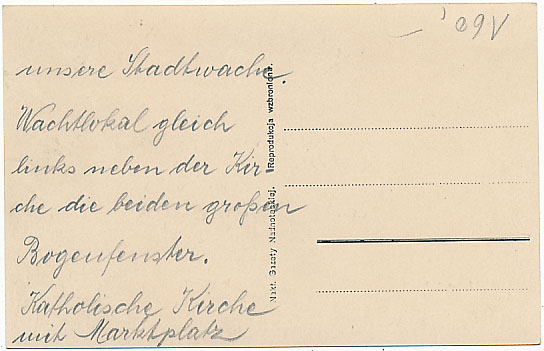 unsere Stadtwache
Wachtlokal gleich
links neben der Kir
che die beiden großen
Bogenfenster.
Katholische Kirche
mit Marktplatz
Nakł. Gazety Nadnoteckiej. Reprodukcja wzbroniona.